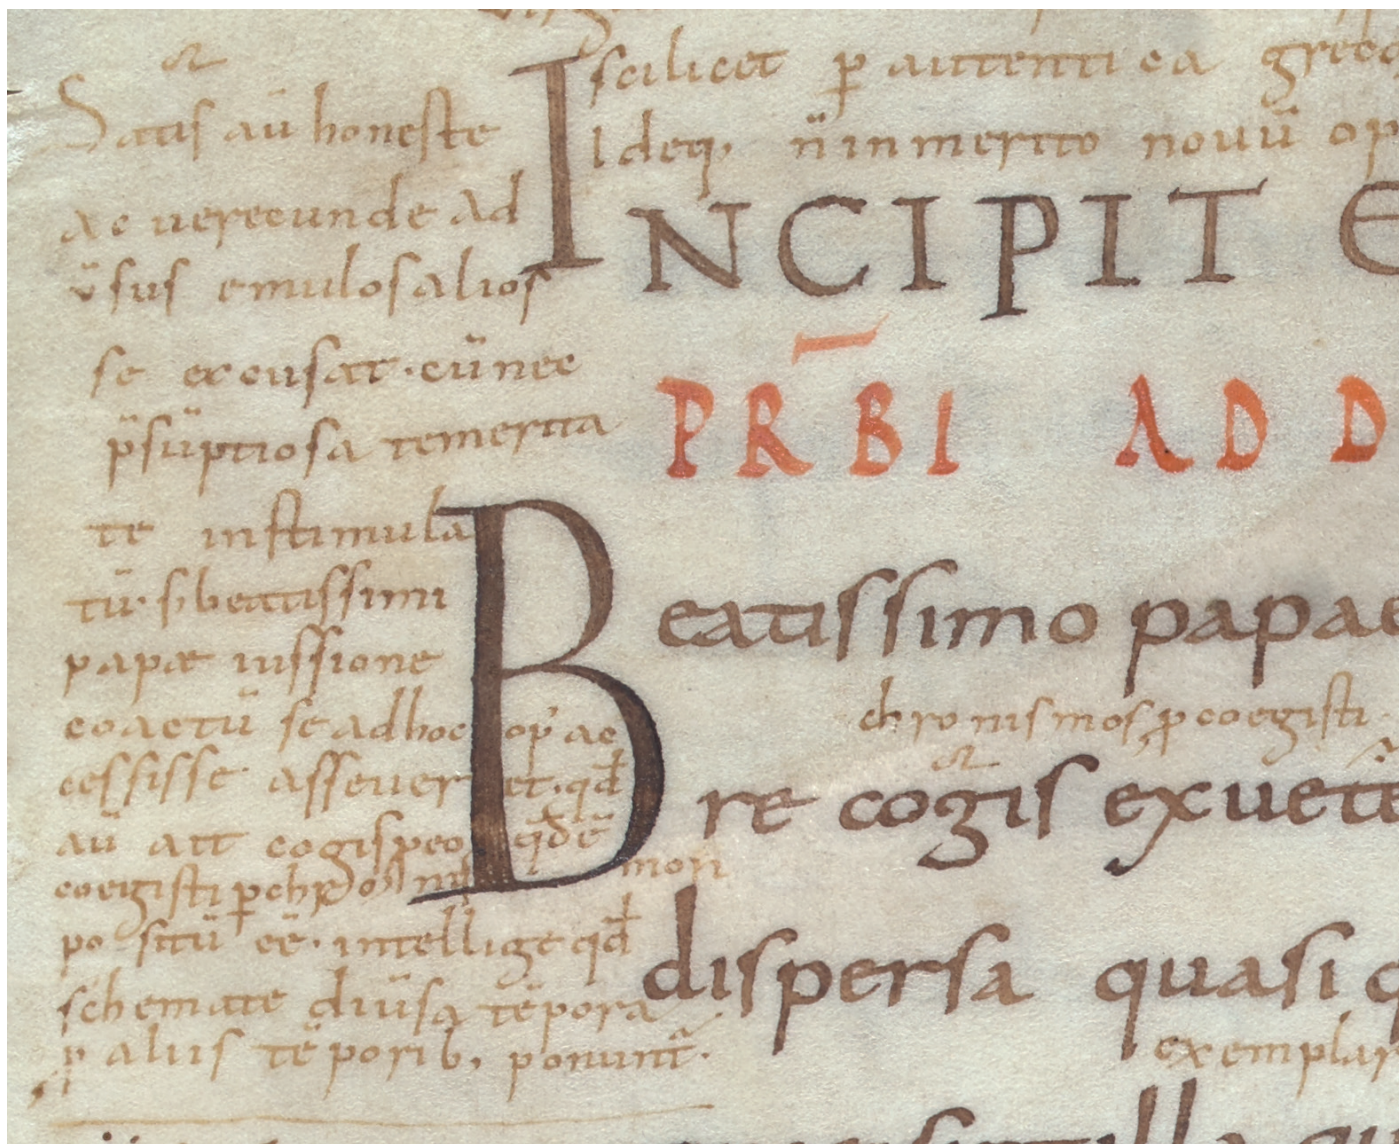 scilicet p̱ autentica grec
Ideq; n̄ inmerito nouū op
INCIPIT E
PRB̄I AD D
Beatissimo papae
chronismos p̱ coegisti
re cogis ex uet
dispersa quasi
exemplar
Satis aū honeste
ac uerecunde ad
ūsus emulos alios
se excusat · cū nec
p̄sūptiosa temerita
te instimula
tū · s; beatissimi
papæ iussione
coactū se ad hoc op' ac
cessisse asseueret · qd
aū ait cogis p eo qd ē
coegisti p chronismon
positū eē · intellige qd
schemate diūsa tēpora
p aliis tēporib; ponunt ·